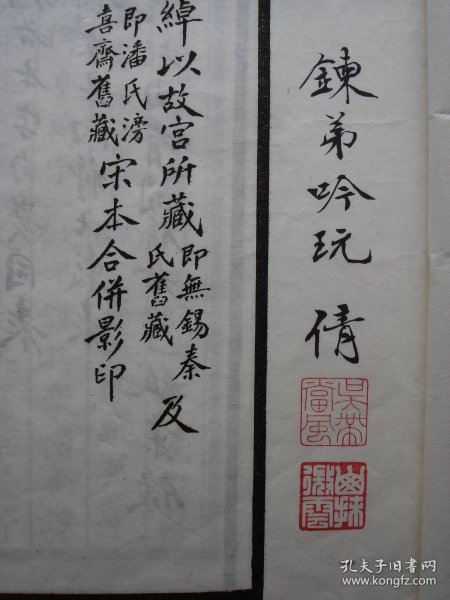 鍊弟吟玩 倩
吳帶當風
山抹微雲
綽以故宮所藏即無錫秦氏舊藏及
即潘氏滂喜齋舊藏宋本合併影印
孔夫子旧书网
www.kongfz.com